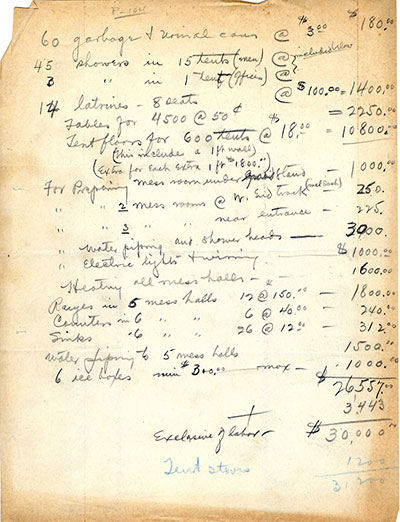 P-104
60 garbage & urinal cans @ $3.00 $180.00
45 showers in 15 tents (men) @ included below
3 " in 1 tent (Officers) @ ?
14 latrines - 8 seats @ $100.00 = 1400.00
Tables for 4500 @ 50¢ = 2250.00
Tent floors for 600 tents @ $18.00 = 10800.00
(this includes a 1ft wall)
(Extra for each Extra 1 ft $1800.00)
For Preparing mess room under Grand Stand - 1000.00
" " 2 mess rooms @ W. end track 250.
" " 3 " " near entrance - 225.
" Water piping and shower heads - 3900.
" Electric lights & wiring - $1000.00
Heating all mess halls - 1600.00
Ranges in 5 mess halls 12 @ 150.00 - 1800.00
Counters in 6 " " 6 @ 40.00 - 240.00
Sinks " 6 " " 26 @ 12.00 - 312.00
Water piping to 5 mess halls 1500.00
6 ice boxes min $300.00 - max - 1000.00
$26,557.00
3,443
Exclusive of labor - $30,000.00
Tent stoves 1200
31,200